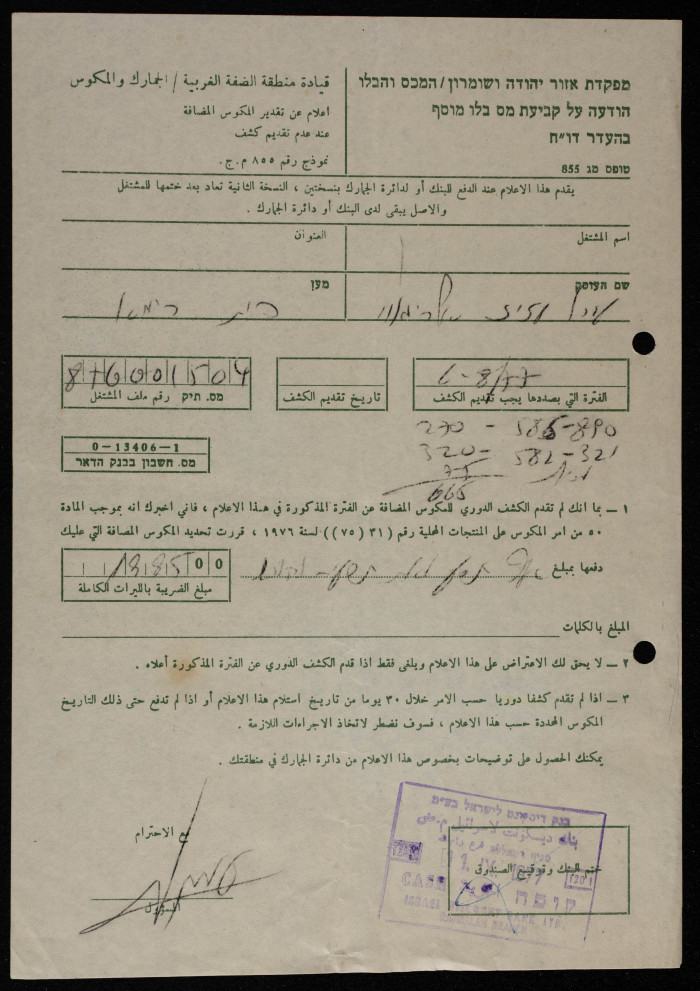 מפקדת אזור יהודה ושומרון/המכס והבלו
הודעה על קביעת מס בלו מוסף
בהעדר דו״ח
טופס מג 855
قيادة منطقة الضفة الغربية/الجمارك والمكوس
اعلام عن تقدير المكوس المضافة
عند عدم تقديم كشف
نموذج رقم ٨٥٥ م.ج.
يقدم هذا الاعلام عند الدفع للبنك أو لدائرة الجمارك بنسختين ، النسخة الثانية تعاد بعد ختمها للمشتغل
والاصل يبقى لدى البنك أو دائرة الجمارك .
اسم المشتغل
العنوان
שם העוסק
מען
בית
6-8/77
الفترة التي بصددها يجب تقديم الكشف
تاريخ تقديم الكشف
876001504
מס. תיק رقم ملف المشتغل
270 - 585-890
320- 582-321
75
665
0-13406-1
מס. חשבון בבנק הדאר
١ — بما انك لم تقدم الكشف الدوري للمكوس المضافة عن الفترة المذكورة في هذا الاعلام ، فاني اخبرك انه بموجب المادة
٥٠ من امر المكوس على المنتجات المحلية رقم (٣١ (٧٥)) لسنة ١٩٧٦ ، قررت تحديد المكوس المضافة التي عليك
دفعها بمبلغ
188500
مبلغ الضريبة بالليرات الكاملة
المبلغ بالكلمات
٢ — لا يحق لك الاعتراض على هذا الاعلام ويلغى فقط اذا قدم الكشف الدوري عن الفترة المذكورة أعلاه .
٣ — اذا لم تقدم كشفا دوريا حسب الامر خلال ٣٠ يوما من تاريخ استلام هذا الاعلام أو اذا لم تدفع حتى ذلك التاريخ
المكوس المحددة حسب هذا الاعلام ، فسوف نضطر لاتخاذ الاجراءات اللازمة .
يمكنك الحصول على توضيحات بخصوص هذا الاعلام من دائرة الجمارك في منطقتك .
مع الاحترام
المسؤول
בנק דיסקונט לישראל בע״מ
بنك ديسكونت لاسرائيل م.ض
ختم البنك وتوقيع الصندوق
CASH
קופה
ISRAEL DISCOUNT BANK LTD.
RAMALLAH BRANCH